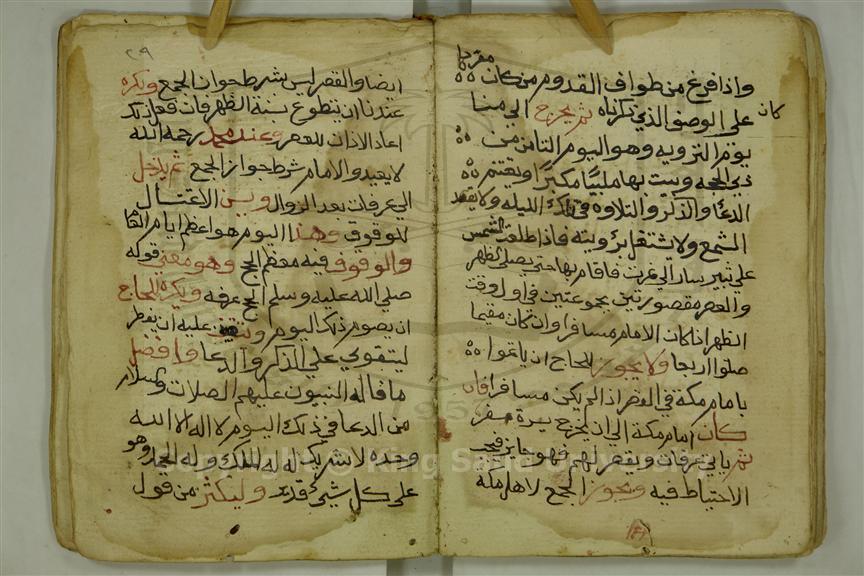 واذا فرغ من طواف القدوم من كان مفردا
على الوصف الذي ذكرناه ثم يخرج الى منا
كان
يوم الترويه وهو اليوم الثامن من
ذي الحجه ويبيت بها ملبيا مكبرا ويغتنم
الدعا والذكر والتلاوه في تلك الليله ولا يوقد
الشمع ولا يشتغل برويته فاذا طلعت الشمس
على ثبير سار الى نمرت فاقام بها حتى يصلي الظهر
والعصر مقصورتين مجموعتين في اول وقت
الظهر اذا كان الامام مسافرا وان كان مقيما
صلوا اربعا ولا يجوز للحاج ان ياتموا
بامام مكة في العصر اذا لم يكن مسافرا فان
كان امام مكة الى ان يخرج سفر
ثم ياتي عرفات ويقصر لهم فهو جايز فيجب
الاحتياط فيه ويجوز الجمع لاهل مكه
٢٩
ايضا والقصر ليس بشرط جواز الجمع ويكره
عندنا ان يتطوع بسنة الظهر فان فعل ذلك
اعاد الاذان للعصر وعند محمد رحمه الله
لا يعيد والامام شرط جواز الجمع ثم يدخل
الى عرفات بعد الزوال ويسن الاغتسال
للوقوف وهذا اليوم هو اعظم ايام
والوقوف فيه معظم الحج وهو معنى قوله
صلى الله عليه وسلم الحج عرفه ويكره للحاج
ان يصوم ذلك اليوم عليه ان يفطر
ليتقوى على الذكر والدعا وافضل
ما قاله النبيون عليهم الصلات والسلام
من الدعا في ذلك اليوم لا اله الا الله
وحده لا شريك له له الملك وله الحمد وهو
على كل شيء قدير وليكثر من قول